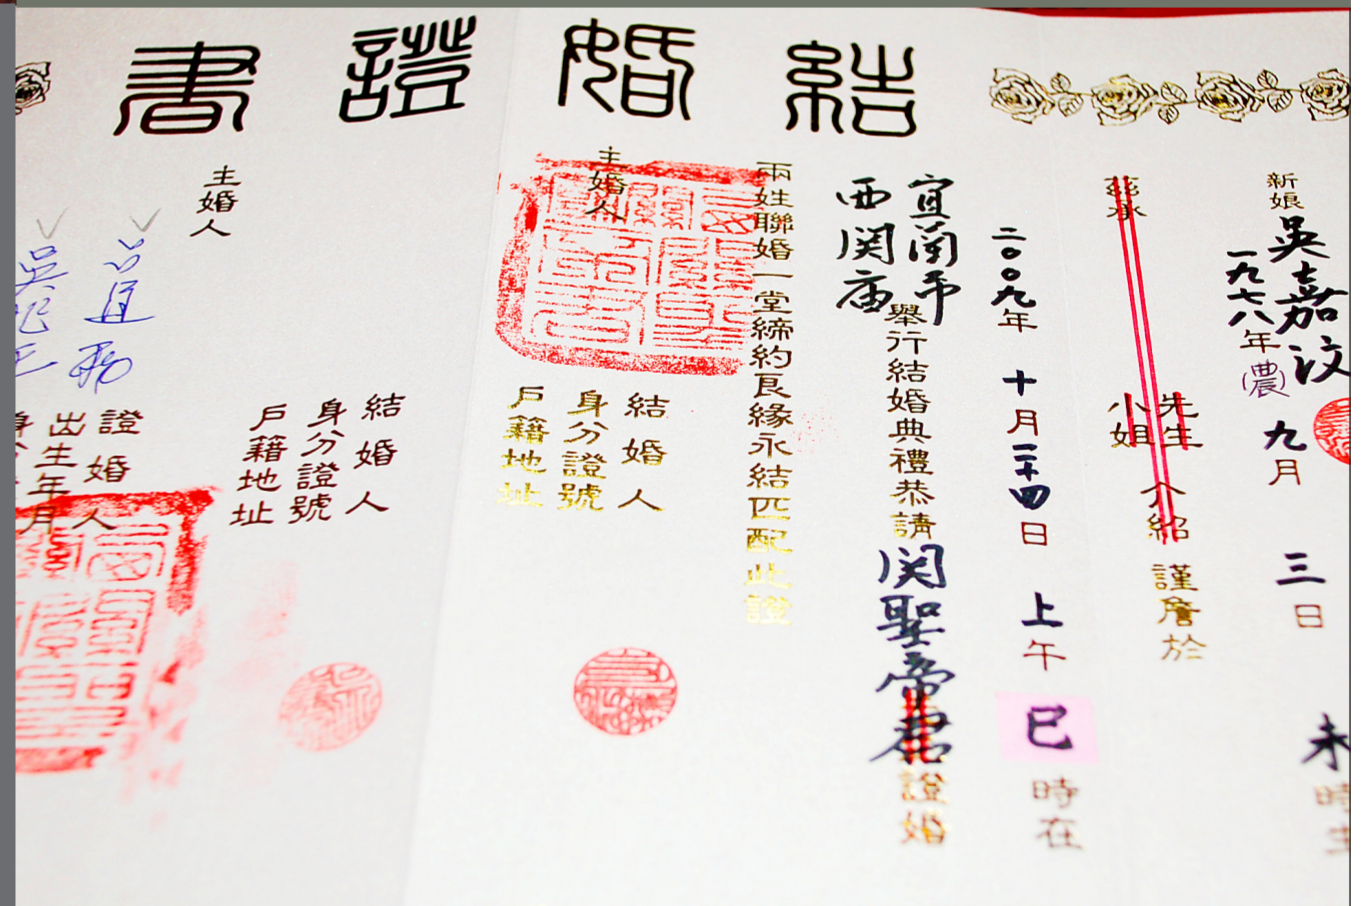 結婚證書
新娘吳嘉汶
一九七八年(農)九月三日未時生
茲承
先生
小姐
介紹謹詹於
二〇〇九年十月二十四日上午巳時在
宜蘭市
西関庙
舉行結婚典禮恭請関聖帝君證婚
兩姓聯婚一堂締約良緣永結匹配此證
主婚人
結婚人
身分證號
戶籍地址
主婚人
結婚人
身分證號
戶籍地址
證婚人
出生年月